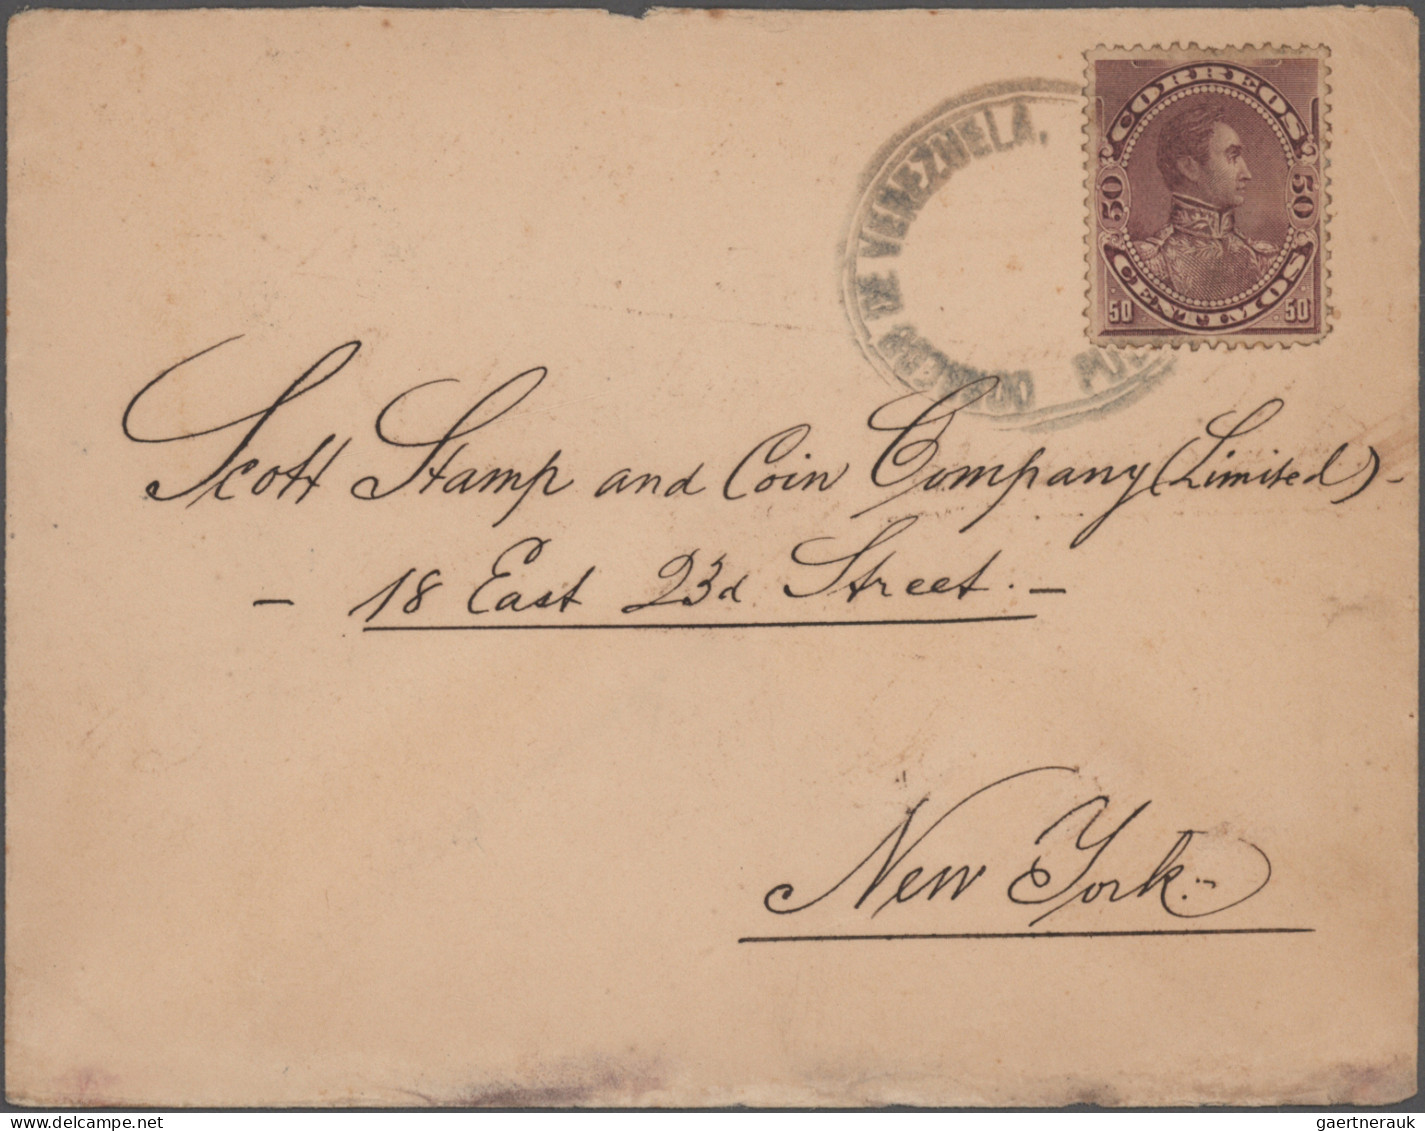 CORREOS
50 50
CENTIMOS
50 50
DE VENEZUELA.
Scott Stamp and Coin Company (Limited) -
- 18 East 23d Street. -
New York.-
delcampe.net
gaertnerauk